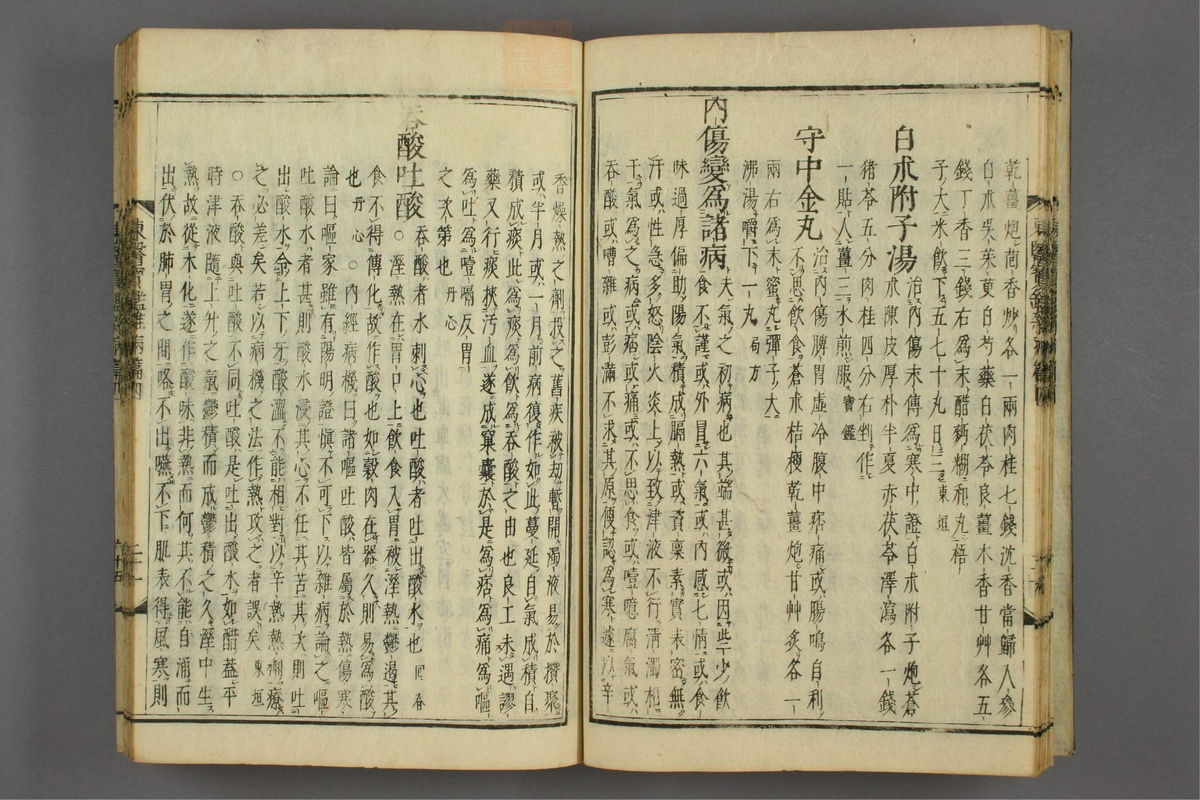 乾薑炮茴香炒各一兩肉桂七錢沈香當歸人參
白朮吳茱萸白芍藥白茯苓良薑木香甘艸各五
錢丁香三錢右爲末醋麪糊和丸梧
子大米飮下五七十丸日二三東垣
白朮附子湯 治內傷末傳爲寒中證白朮附子炮蒼
朮陳皮厚朴半夏赤茯苓澤瀉各一錢
猪苓五分肉桂四分右剉作
一貼入薑三水煎服寶鑑
守中金丸 治內傷脾胃虛冷腹中痞痛或腸鳴自利
不思飮食蒼朮桔梗乾薑炮甘艸炙各一
兩右爲末蜜丸彈子大
沸湯嚼下一丸局方
內傷變爲諸病 夫氣之初病也其端甚微或因些少飮
食不謹或外冒六氣或內感七情或食
味過厚偏助陽氣積成膈熱或資稟素實表密無
汗或性急多怒陰火炎上以致津液不行淸濁相
干氣爲之病或痞或痛或不思食或噫腐氣或
吞酸或嘈雜或彭滿不求其原便認爲寒遽以辛
香燥熱之劑投之舊疾被劫暫開濁液易於攅聚
或半月或一月前病復作如此蔓延自氣成積自
積成痰此爲痰爲飮爲吞酸之由也良工未遇謬
藥又行痰挾汚血遂成窠囊於是爲痞爲痛爲嘔
爲吐爲噎膈反胃
之次第也丹心
吞酸吐酸 吞酸者水刺心也吐酸者吐出酸水也回春
○溼熱在胃口上飮食入胃被溼熱鬱遏其
食不得傳化故作酸也如穀肉在器久則易爲酸
也丹心○內經病機曰諸嘔吐酸皆屬於熱傷寒
論曰嘔家雖有陽明證愼不可下以雜病論之嘔
吐酸水者甚則酸水浸其心不任其苦其次則吐
出酸水令上下牙酸澁不能相對以辛熱劑療
之必差矣若以病機之法作熱攻之者誤矣東垣
○吞酸與吐酸不同吐酸是吐出酸水如醋蓋平
時津液隨上升之氣鬱積而成鬱積之久溼中生
熱故從木化遂作酸味非熱而何其不能自涌而
出伏於肺胃之間咯不出嚥不下肌表得風寒則